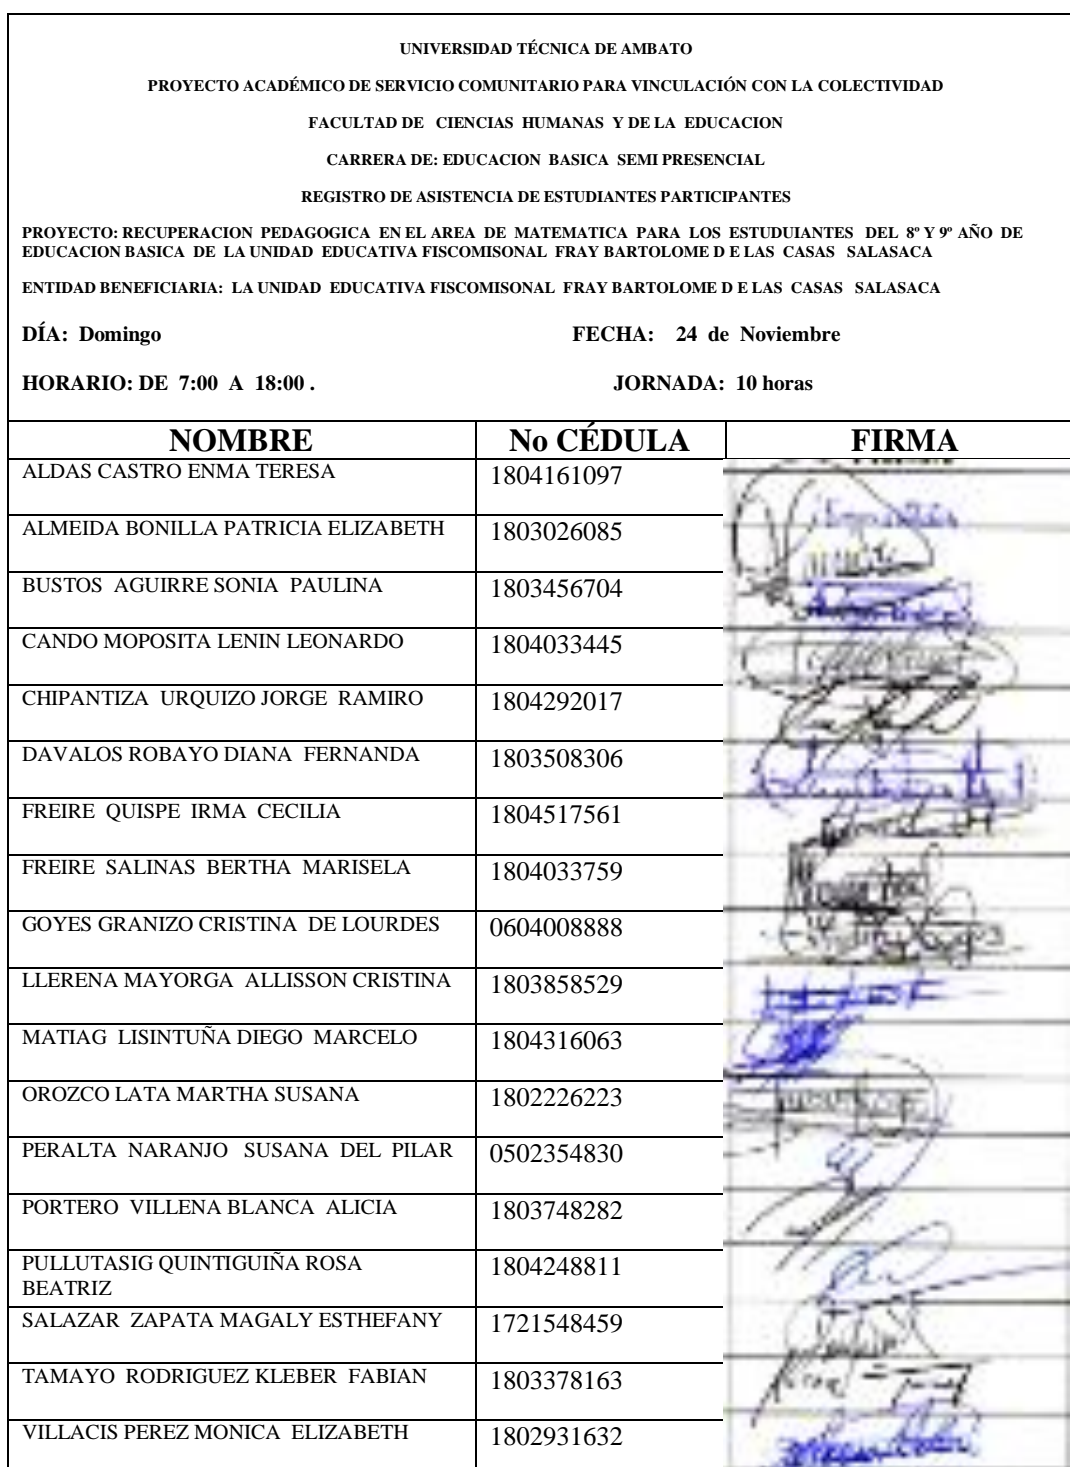 UNIVERSIDAD TÉCNICA DE AMBATO
PROYECTO ACADÉMICO DE SERVICIO COMUNITARIO PARA VINCULACIÓN CON LA COLECTIVIDAD
FACULTAD DE CIENCIAS HUMANAS Y DE LA EDUCACION
CARRERA DE: EDUCACION BASICA SEMI PRESENCIAL
REGISTRO DE ASISTENCIA DE ESTUDIANTES PARTICIPANTES
PROYECTO: RECUPERACION PEDAGOGICA EN EL AREA DE MATEMATICA PARA LOS ESTUDUIANTES DEL 8º Y 9º AÑO DE
EDUCACION BASICA DE LA UNIDAD EDUCATIVA FISCOMISONAL FRAY BARTOLOME D E LAS CASAS SALASACA
ENTIDAD BENEFICIARIA: LA UNIDAD EDUCATIVA FISCOMISONAL FRAY BARTOLOME D E LAS CASAS SALASACA
DÍA: Domingo FECHA: 24 de Noviembre
HORARIO: DE 7:00 A 18:00 . JORNADA: 10 horas
NOMBRE No CÉDULA FIRMA
ALDAS CASTRO ENMA TERESA 1804161097
ALMEIDA BONILLA PATRICIA ELIZABETH 1803026085
BUSTOS AGUIRRE SONIA PAULINA 1803456704
CANDO MOPOSITA LENIN LEONARDO 1804033445
CHIPANTIZA URQUIZO JORGE RAMIRO 1804292017
DAVALOS ROBAYO DIANA FERNANDA 1803508306
FREIRE QUISPE IRMA CECILIA 1804517561
FREIRE SALINAS BERTHA MARISELA 1804033759
GOYES GRANIZO CRISTINA DE LOURDES 0604008888
LLERENA MAYORGA ALLISSON CRISTINA 1803858529
MATIAG LISINTUÑA DIEGO MARCELO 1804316063
OROZCO LATA MARTHA SUSANA 1802226223
PERALTA NARANJO SUSANA DEL PILAR 0502354830
PORTERO VILLENA BLANCA ALICIA 1803748282
PULLUTASIG QUINTIGUIÑA ROSA 1804248811
BEATRIZ
SALAZAR ZAPATA MAGALY ESTHEFANY 1721548459
TAMAYO RODRIGUEZ KLEBER FABIAN 1803378163
VILLACIS PEREZ MONICA ELIZABETH 1802931632